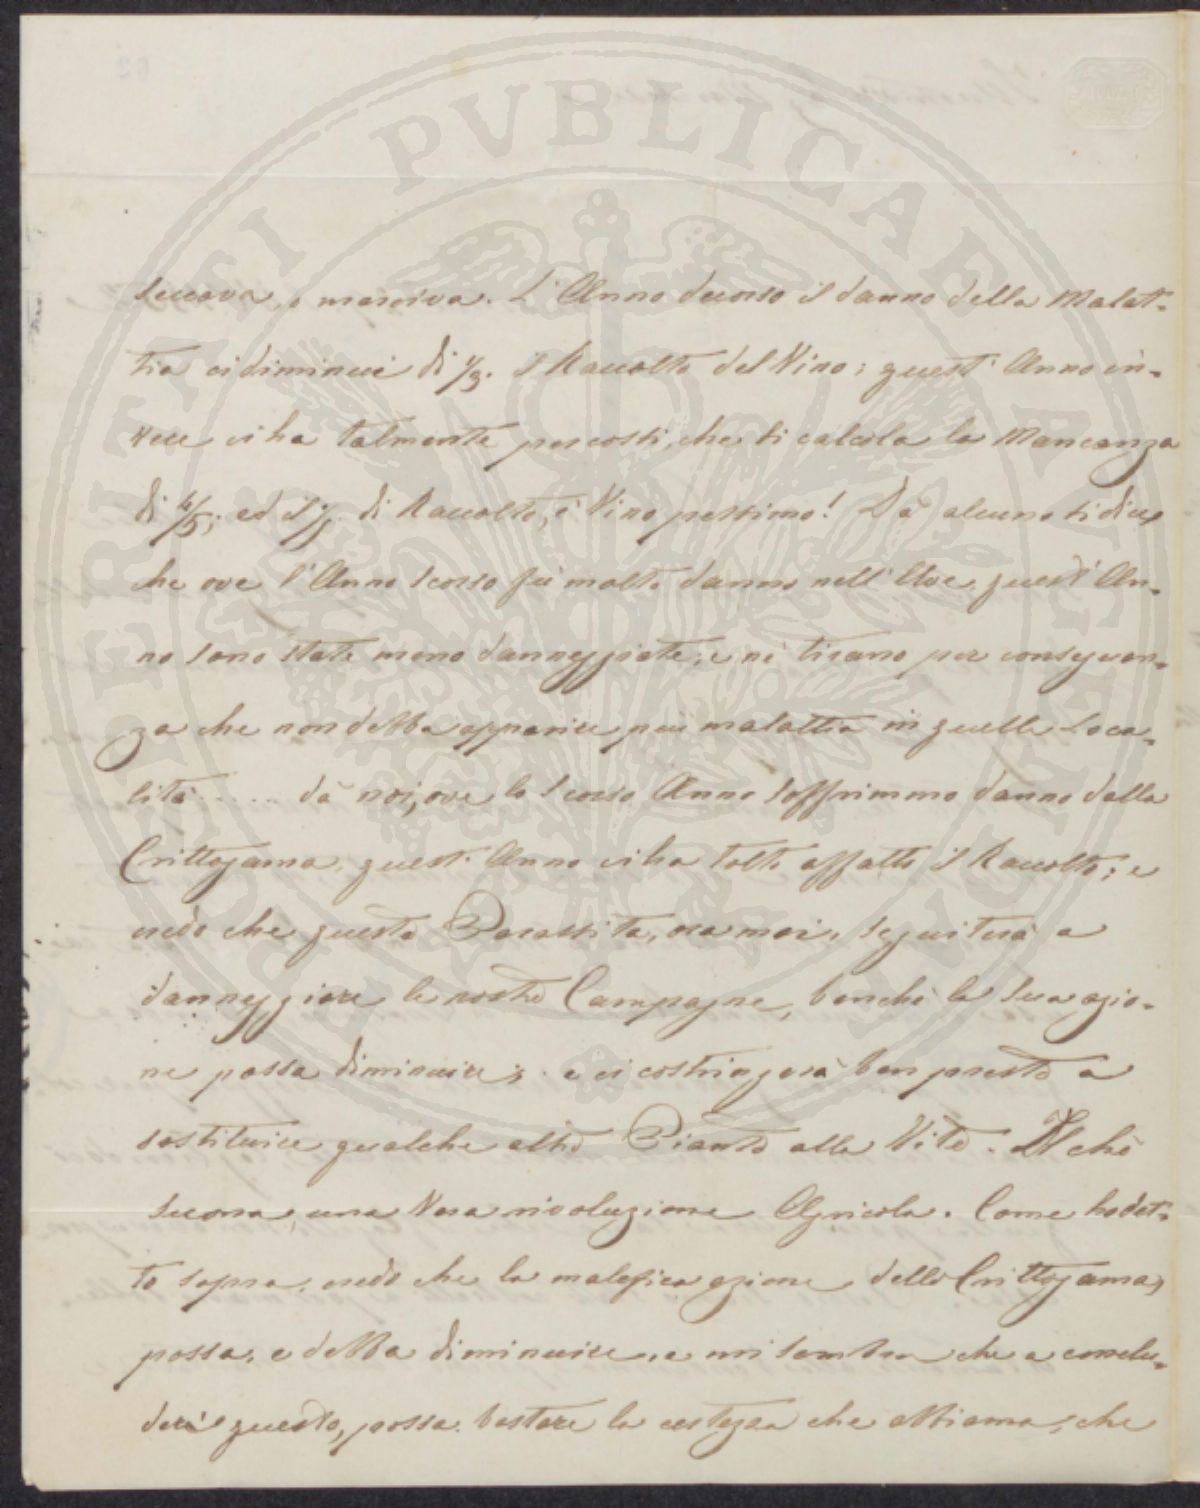 seccava, o marciva. L'Anno decorso il danno della Malat-
tia ci diminuì di 1/3. il Raccolto del Vino; quest'Anno in-
vece ci ha talmente percossi, che si calcola la Mancanza
di 4/5; ed il 1/5 di Raccolto, è Vino pessimo! Dà alcuno si dice,
che ove l'Anno scorso fù molto danno nell'Uve, quest'An-
no sono state meno danneggiate; e nè tirano per conseguen-
za che non debba apparire più malattia in quelle Loca-
lità ...... dà noi, ove lo scorso Anno soffrimmo danno dalla
Crittogama, quest'Anno ci ha tolto affatto il Raccolto; e
credo che questo Parassita, oramai, seguiterà a
danneggiare le nostre Campagne, benchè la sua azio-
ne possa diminuire; e ci costringerà ben presto a
sostituire qualche altra Pianta alla Vite. Il chè
una Vera rivoluzione Agricola. Come ho det-
to sopra, credo che la malefica azione della Crittogama,
possa, e debba diminuire, e mi sembra che a conclu-
dere questo, possa bastare la certezza che abbiamo, che
PERITVRI PVBLICAE